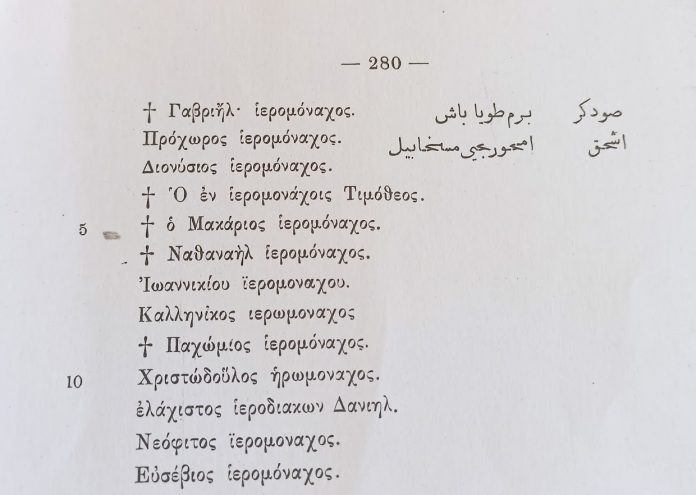 — 280 —
† Γαβριῆλ· ἱερομόναχος. برم طوبا باش صودكر
Πρόχωρος ἱερομόναχος. اسحق
Διονύσιος ἱερομόναχος.
† Ὁ ἐν ἱερομονάχοις Τιμόθεος.
5 † ὁ Μακάριος ἱερομόναχος.
† Ναθαναὴλ ἱερομόναχος.
Ἰωαννικίου ϊερομοναχου.
Καλληνῖκος ιερωμοναχος
† Παχώμιος ἱερομόναχος.
10 Χριστώδοῦλος ἡρωμοναχος.
ἐλάχιστος ἱεροδιακων Δανιηλ.
Νεόφιτος ϊερομοναχος.
Εὐσέβιος ἱερομόναχος.